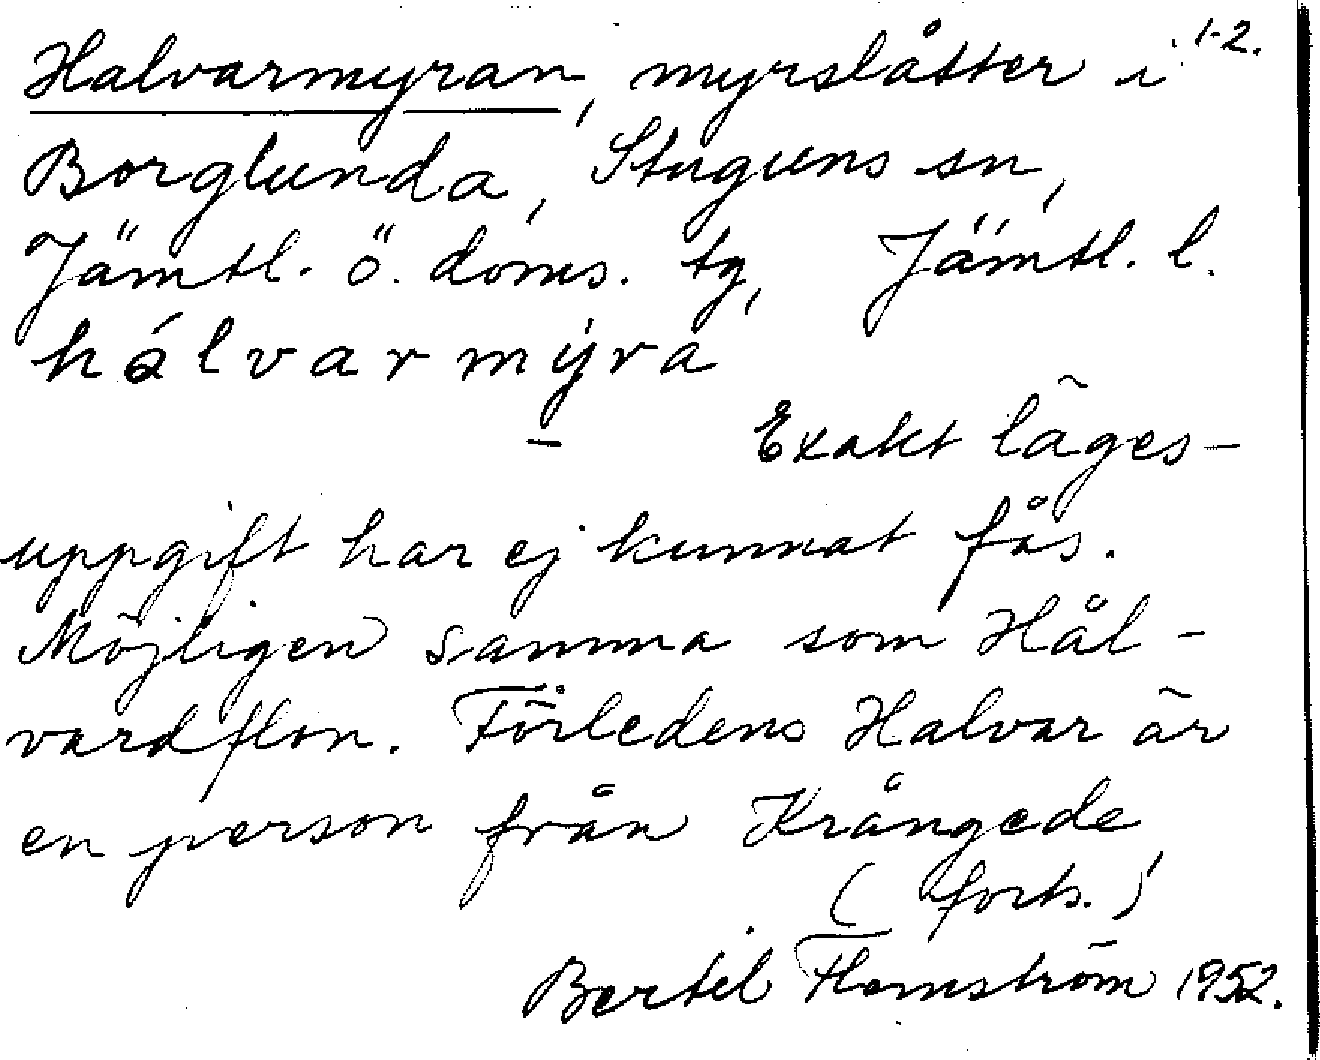 1-2.
Halvarmyran, myrslåtter i
Borglunda, Stuguns sn,
Jämtl. ö. doms. tg, Jämtl. l.
hálvarmýra
Exakt läges-
uppgift har ej kunnat fås.
Möjligen samma som Hål-
vardflon. Förledens Halvar är
en person från Krångede
(forts.)
Bertil Flemström 1952.